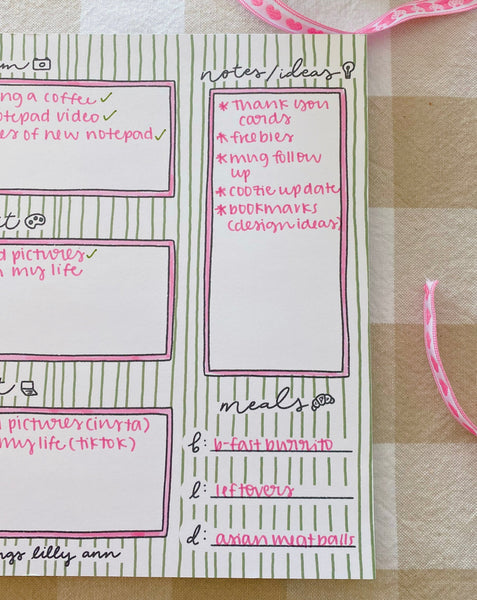 ng a coffee
otepad video
es of new notepad
d pictures
n my life
pictures (insta)
my life (tiktok)
ngs lilly ann
notes/ideas
*Thank you
cards
*freebies
*mug follow
up
*cootie update
*bookmarks
(design ideas)
meals
b: b-fast burrito
l: leftovers
d: asian meatballs